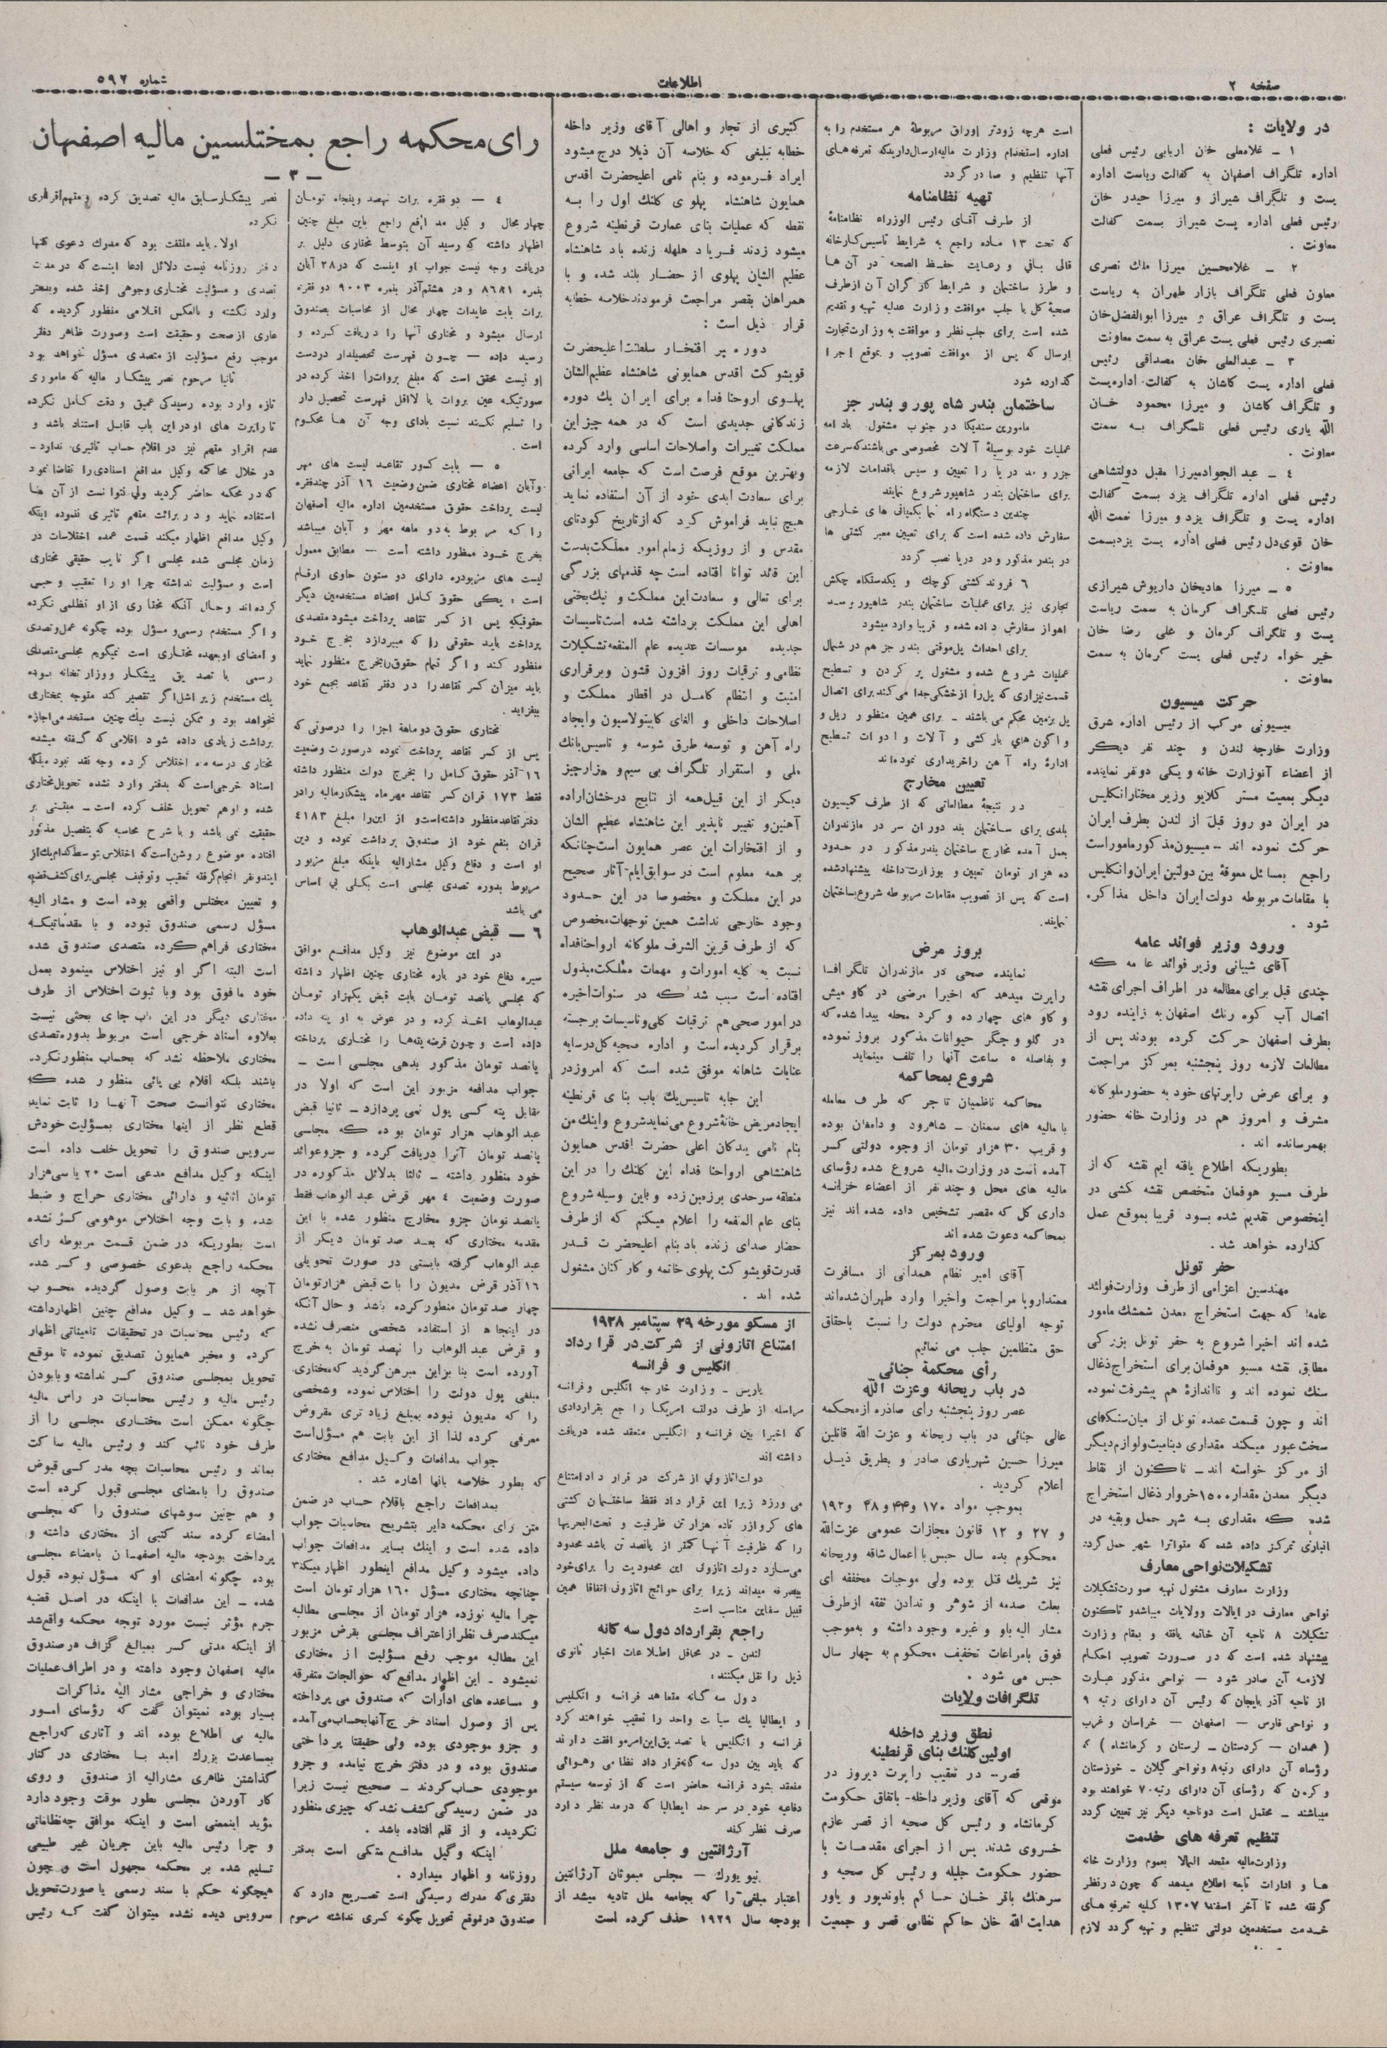 صفحه ۲
اطلاعات
شماره ۵۹۷
در ولایات :
۱ ــ غلامعلی خان اربابی رئیس فعلی
اداره تلگراف اصفهان به کفالت ریاست اداره
پست و تلگراف شیراز و میرزا حیدر خان
رئیس فعلی اداره پست شیراز بسمت کفالت
معاونت .
۲ ــ غلامحسین میرزا ملک نصری
معاون فعلی تلگراف بازار طهران به ریاست
پست و تلگراف عراق و میرزا ابوالفضل خان
نصیری رئیس فعلی پست عراق به سمت معاونت
۳ ــ عبدالعلی خان مصداقی رئیس
فعلی اداره پست کاشان به کفالت اداره پست
و تلگراف کاشان و میرزا محمود خان
الله یاری رئیس فعلی تلگراف به سمت
معاونت .
٤ ــ عبد الجواد میرزا مقبل دولتشاهی
رئیس فعلی اداره تلگراف یزد بسمت کفالت
اداره پست و تلگراف یزد و میرزا نعمت الله
خان قوی دل رئیس فعلی اداره پست یزد بسمت
معاونت .
۵ ــ میرزا هادیخان داریوش شیرازی
رئیس فعلی تلگراف کرمان به سمت ریاست
پست و تلگراف کرمان و علی رضا خان
خیر خواه رئیس فعلی پست کرمان به سمت
معاونت .
حرکت میسیون
میسیونی مرکب از رئیس اداره شرق
وزارت خارجه لندن و چند نفر دیگر
از اعضاء آنوزارت خانه و یکی دو نفر نماینده
دیگر بمعیت مستر کلایو وزیر مختار انگلیس
در ایران دو روز قبل از لندن بطرف ایران
حرکت نموده اند ــ میسیون مذکور مامور است
راجع بمسائل معوقة بین دولتین ایران و انگلیس
با مقامات مربوطه دولت ایران داخل مذاکره
شود .
ورود وزیر فوائد عامه
آقای شیبانی وزیر فوائد عامه که
چندی قبل برای مطالعه در اطراف اجرای نقشه
اتصال آب کوه رنگ اصفهان به زاینده رود
بطرف اصفهان حرکت کرده بودند پس از
مطالعات لازمه روز پنجشنبه بمرکز مراجعت
و برای عرض راپرتهای خود به حضور ملوکانه
مشرف و امروز هم در وزارت خانه حضور
بهمرسانده اند .
بطوریکه اطلاع یافته ایم نقشه که از
طرف مسیو هوفمان متخصص نقشه کشی در
اینخصوص تقدیم شده بود قریبا بموقع عمل
گذارده خواهد شد .
حفر تونل
مهندسین اعزامی از طرف وزارت فوائد
عامه که جهت استخراج معدن شمشک مامور
شده اند اخیرا شروع به حفر تونل بزرگی
مطابق نقشه مسیو هوفمان برای استخراج ذغال
سنگ نموده اند و تا اندازهٔ هم پیشرفت نموده
اند و چون قسمت عمده تونل از میان سنگهای
سخت عبور میکند مقداری دینامیت و لوازم دیگر
از مرکز خواسته اند ــ تاکنون از نقاط
دیگر معدن مقدار ۱۵۰۰ خروار ذغال استخراج
شده که مقداری به شهر حمل و بقیه در
انباری تمرکز داده شده که متواترا شهر حمل گردد
تشکیلات نواحی معارف
وزارت معارف مشغول تهیه صورت تشکیلات
نواحی معارف در ایالات و ولایات میباشد و تاکنون
تشکیلات ۸ ناحیه آن خاتمه یافته و بمقام وزارت
پیشنهاد شده است که در صورت تصویب احکام
لازمه آن صادر شود ــ نواحی مذکور عبارت
از ناحیه آذربایجان که رئیس آن دارای رتبه ۹
و نواحی فارس ــ اصفهان ــ خراسان و غرب
( همدان ــ کردستان ــ لرستان و کرمانشاه ) که
رؤساه آن دارای رتبه ۸ و نواحی گیلان ــ خوزستان
و کرمان که رؤسای آن دارای رتبه ۷ خواهند بود
میباشند ــ محتمل است دو ناحیه دیگر نیز تعیین گردد
تنظیم تعرفه های خدمت
وزارت مالیه متحد المالا بعموم وزارت خانه
ها و ادارات تابعه اطلاع میدهد که چون در نظر
گرفته شده تا آخر اسفند ۱۳۰۷ کلیه تعرفه های
خدمت مستخدمین دولتی تنظیم و تهیه گردد لازم
است هرچه زودتر اوراق مربوطهٔ هر مستخدم را به
اداره استخدام وزارت مالیه ارسال دارید که تعرفه های
آنها تنظیم و صادر گردد
تهیه نظامنامه
از طرف آقای رئیس الوزراء نظامنامهٔ
که تحت ۱۳ ماده راجع به شرایط تاسیس کارخانه
قالی بافی و رعایت حفظ الصحه در آن ها
و طرز ساختمان و شرایط کارگران آن از طرف
صحیه کل با جلب موافقت وزارت عدلیه تهیه و تقدیم
شده است برای جلب نظر و موافقت به وزارت تجارت
ارسال که پس از موافقت تصویب و بموقع اجرا
گذارده شود
ساختمان بندر شاه پور و بندر جز
مامورین سندیکا در جنوب مشغول بادامه
عملیات خود بوسیلهٔ آلات مخصوصی میباشند که سرعت
جزر و مد دریا را تعیین و سپس باقدامات لازمه
برای ساختمان بندر شاهپور شروع نمایند
چندین دستگاه راه نما بکمپانی های خارجی
سفارش داده شده است که برای تعیین معبر کشتی ها
در بندر مذکور و در دریا نصب گردد
۶ فروند کشتی کوچک و یکدستگاه چکش
نجاری نیز برای عملیات ساختمان بندر شاهپور بسد
اهواز سفارش داده شده و قریبا وارد میشود
برای احداث پل موقتی بندر جز هم در شمال
عملیات شروع شده و مشغول پر کردن و تسطیح
قسمت نیزاری که پل را از خشکی جدا می کند برای اتصال
پل بزمین محکم می باشند ــ برای همین منظور ریل و
واگون های بارکشی و آلات و ادوات تسطیح
ادارهٔ راه آهن را خریداری نموده اند
تعیین مخارج
در نتیجهٔ مطالعاتی که از طرف کمیسیون
بلدی برای ساختمان بند دوران سر در مازندران
بعمل آمده مخارج ساختمان بندر مذکور در حدود
ده هزار تومان تعیین و بوزارت داخله پیشنهاد شده
است که پس از تصویب مقامات مربوطه شروع ساختمان
نمایند.
بروز مرض
نماینده صحی در مازندران تلگرافا
راپرت میدهد که اخیرا مرضی در گاومیش
و گاو های چهارده و کرد محله پیدا شده که
در گلو و جگر حیوانات مذکور بروز نموده
و بفاصله ۵ ساعت آنها را تلف مینماید
شروع بمحاکمه
محاکمه ناظمیان تاجر که طرف معامله
با مالیه های سمنان ــ شاهرود و دامغان بوده
و قریب ۳۰ هزار تومان از وجوه دولتی کسر
آمده است در وزارت مالیه شروع شده رؤسای
مالیه های محل و چند نفر از اعضاء خزانه
داری کل که مقصر تشخیص داده شده اند نیز
بمحاکمه دعوت شده اند
ورود بمرکز
آقای امیر نظام همدانی از مسافرت
ممتد اروپا مراجعت و اخیرا وارد طهران شده اند
توجه اولیای محترم دولت را نسبت باحقاق
حق متظلمین جلب می نمائیم
رأی محکمهٔ جنائی
در باب ریحانه وعزت الله
عصر روز پنجشنبه رأی صادره از محکمه
عالی جنائی در باب ریحانه و عزت الله قاتلین
میرزا حسین شهریاری صادر و بطریق ذیل
اعلام گردید .
بموجب مواد ۱۷۰ و ۴۴ و ۴۸ و ۱۹۲
و ۲۷ و ۱۲ قانون مجازات عمومی عزت الله
محکوم بده سال حبس با اعمال شاقه و ریحانه
نیز شریک قتل بوده ولی موجبات مخففه ای
بعلت صدمه از شوهر و ندادن نفقه از طرف
مشار الیه باو و غیره وجود داشته و به موجب
فوق بامراعات تخفیف محکوم به چهار سال
حبس می شود .
تلگرافات ولایات
نطق وزیر داخله
اولین کلنگ بنای قرنطینه
قصر ــ در تعقیب راپرت دیروز در
موقعی که آقای وزیر داخله باتفاق حکومت
کرمانشاه و رئیس کل صحیه از قصر عازم
خسروی شدند پس از اجرای مقدمات با
حضور حکومت جلیله و رئیس کل صحیه و
سرهنگ باقر خان حاکم باوندپور و یاور
هدایت الله خان حاکم نظامی قصر و جمعیت
کثیری از تجار و اهالی آقای وزیر داخله
خطابه بلیغی که خلاصه آن ذیلا درج میشود
ایراد فرموده و بنام نامی اعلیحضرت اقدس
همایون شاهنشاه پهلوی کلنگ اول را به
نقطه که عملیات بنای عمارت قرنطینه شروع
میشود زدند فریاد هلهله زنده باد شاهنشاه
عظیم الشان پهلوی از حضار بلند شده و با
همراهان بقصر مراجعت فرمودند خلاصه خطابه
قرار ذیل است :
دوره پر افتخار سلطنت اعلیحضرت
قویشوکت اقدس همایونی شاهنشاه عظیم الشان
پهلوی ارواحنا فداه برای ایران یک دوره
زندگانی جدیدی است که در همه چیز این
مملکت تغییرات و اصلاحات اساسی وارد کرده
وبهترین موقع فرصت است که جامعه ایرانی
برای سعادت ابدی خود از آن استفاده نماید
هیچ نباید فراموش کرد که از تاریخ کودتای
مقدس و از روزیکه زمام امور مملکت بدست
این قائد توانا افتاده است چه قدمهای بزرگی
برای تعالی و سعادت این مملکت و نیک بختی
اهالی این مملکت برداشته شده است تاسیسات
جدیده موسسات عدیده عام المنفعه تشکیلات
نظامی و ترقیات روز افزون قشون و برقراری
امنیت و انتظام کامل در اقطار مملکت و
اصلاحات داخلی و الغای کاپیتولاسیون و ایجاد
راه آهن و توسعه طرق شوسه و تاسیس بانک
ملی و استقرار تلگراف بی سیم و هزار چیز
دیگر از این قبیل همه از نتایج درخشان اراده
آهنین و تغییر ناپذیر این شاهنشاه عظیم الشان
و از افتخارات این عصر همایون است چنانکه
بر همه معلوم است در سوابق ایام آثار صحیح
در این مملکت و مخصوصا در این حدود
وجود خارجی نداشت همین توجهات مخصوص
که از طرف قرین الشرف ملوکانه ارواحنا فداه
نسبت به کلیه امورات و مهمات مملکت مبذول
افتاده است سبب شد که در سنوات اخیره
در امور صحی هم ترقیات کلی و تاسیسات برجسته
برقرار گردیده است و اداره صحیه کل در سایه
عنایات شاهانه موفق شده است که امروز در
این جا به تاسیس یک باب بنای قرنطینه
ایجاد مریض خانهٔ شروع می نماید شروع و اینک من
بنام نامی بندگان اعلی حضرت اقدس همایون
شاهنشاهی ارواحنا فداه این کلنگ را در این
منطقه سرحدی بر زمین زده و باین وسیله شروع
بنای عام المنفعه را اعلام میکنم که از طرف
حضار صدای زنده باد بنام اعلیحضرت قدر
قدرت قویشوکت پهلوی خاتمه و کارکنان مشغول
شده اند .
از مسکو مورخه ۲۹ سپتامبر ۱۹۲۸
امتناع اتازونی از شرکت در قرارداد
انگلیس و فرانسه
پاریس ــ وزارت خارجه انگلیس وفرانسه
مراسله از طرف دولت امریکا راجع بقراردادی
که اخیرا بین فرانسه و انگلیس منعقد شده دریافت
داشته اند
دولت اتازونی از شرکت در قرارداد امتناع
می ورزد زیرا این قرارداد فقط ساختمان کشتی
های کروازر تا ده هزار تن ظرفیت و تحت البحریها
را که ظرفیت آنها کمتر از پانصد تن باشد محدود
می سازد دولت اتازونی این محدودیت را برای خود
بیصرفه میداند زیرا برای حوائج اتازونی اتفاقا همین
قبیل سفاین مناسب است
راجع بقرارداد دول سه گانه
لندن ــ در محافل اطلاعات اخبار ثانوی
ذیل را نقل میکنند :
دول سه گانه متعاهد فرانسه و انگلیس
و ایطالیا یک سیاست واحد را تعقیب خواهند کرد
فرانسه و انگلیس با تصدیق این امر موافقت دارند
که باید بین دول سه گانه قرارداد نظامی و هوائی
منعقد بشود فرانسه حاضر است که از توسعه سیستم
دفاعیه خود در سرحد ایطالیا که در مد نظر دارد
صرف نظر کند
آرژانتین و جامعه ملل
نیویورک ــ مجلس مبعوثان آرژانتین
اعتبار مبلغی را که بجامعه ملل تادیه میشد از
بودجه سال ۱۹۲۹ حذف کرده است
رای محکمه راجع بمختلسین مالیه اصفهان
ــ ۳ ــ
٤ ــ دو فقره برات نهصد و پنجاه تومان
چهار محال و کیل مدافع راجع باین مبلغ چنین
اظهار داشته که رسید آن بتوسط مختاری دلیل بر
دریافت وجه نیست جواب او اینست که در ۲۸ آبان
بنمره ۸۶۹۱ و در هشتم آذر بنمره ۹۰۰۳ دو فقره
برات بابت عایدات چهار محال از محاسبات بصندوق
ارسال میشود و مختاری آنها را دریافت کرده و
رسید داده ــ چون فهرست تحصیلدار در دست
او نیست محقق است که مبلغ بروات را اخذ کرده در
صورتیکه عین بروات یا لااقل فهرست تحصیل دار
را تسلیم نکند نسبت بادای وجه آن ها محکوم
است .
۵ ــ بابت کسور تقاعد لیست های مهر
وآبان اعضاء مختاری ضمن وضعیت ۱۶ آذر چند فقره
لیست پرداخت حقوق مستخدمین اداره مالیه اصفهان
را که مربوط به دو ماهه مهر و آبان میباشد
بخرج خود ممظور داشته است ــ مطابق معمول
لیست های مزبوره دارای دو ستون حاوی ارقام
است : یکی حقوق کامل اعضاء مستخدمین دیگر
حقوقیکه پس از کسر تقاعد پرداخت میشود متصدی
پرداخت باید حقوقی را که میپردازد بخرج خود
منظور کند و اگر تمام حقوق را بخرج منظور نماید
باید میزان کسر تقاعد را در دفتر تقاعد بجمع خود
بیفزاید .
مختاری حقوق دو ماهه اجزا را در صورتی که
پس از کسر تقاعد پرداخت نموده در صورت وضعیت
۱۶ آذر حقوق کامل را بخرج دولت منظور داشته
فقط ۱۷۳ قران کسر تقاعد مهر ماه پیشکار مالیه را در
دفتر تقاعد منظور داشته است و از این را مبلغ ۴۱۸۳
قران بنفع خود از صندوق برداشت نموده و دین
او است و دفاع وکیل مشارالیه باینکه مبلغ مزبور
مربوط بدوره تصدی مجلسی است بکلی بی اساس
می باشد
۶ ــ قبض عبدالوهاب
در این موضوع نیز وکیل مدافع موافق
سیره دفاع خود در باره مختاری چنین اظهار داشته
که مجلسی پانصد تومان بابت قبض یکهزار تومان
عبدالوهاب اخذ کرده و در عوض به او پته داده
داده است و چون قرضه پته ها را مختاری پرداخته
پانصد تومان مذکور بدهی مجلسی است ــ
جواب مدافعه مزبور این است که اولا در
مقابل پته کسی پول نمی پردازد ــ ثانیا قبض
عبد الوهاب هزار تومان بوده که مجلسی
پانصد تومان آنرا دریافت کرده و جزو عوائد
خود منظور داشته ــ ثالثا بدلائل مذکوره در
صورت وضعیت ٤ مهر قرض عبد الوهاب فقط
پانصد تومان جزو مخارج منظور شده با این
مقدمه مختاری که بعد صد تومان دیگر از
عبد الوهاب گرفته بایستی در صورت تحویلی
۱۶ آذر قرض مدیون را بابت قبض هزار تومان
چهار صد تومان منظور کرده باشد و حال آنکه
در اینجا هم از استفاده شخصی منصرف نشده
و قرض عبد الوهاب را نهصد تومان به خرج
آورده است بنا براین مبرهن گردید که مختاری
مبلغی پول دولت را اختلاس نموده و شخصی
را که مدیون نبوده بمبلغ زیادتری مقروض
معرفی کرده لذا از این بابت هم مسؤل است
جواب مدافعات وکیل مدافع مختاری
که بطور خلاصه بانها اشاره شد .
بمدافعات راجع باقلام حساب در ضمن
متن رای محکمه دایر بتشریح محاسبات جواب
داده شده است و اینک بسایر مدافعات جواب
داده میشود وکیل مدافع اینطور اظهار میکند
چنانچه مختاری مسؤل ۱۶۰ هزار تومان است
چرا مالیه نوزده هزار تومان از مجلسی مطالبه
میکند صرف نظر از اعتراف مجلسی بقرض مزبور
این مطالبه موجب رفع مسؤلیت از مختاری
نمیشود . این اظهار مدافع که حوالجات متفرقه
و مساعده های ادارات که صندوق می پرداخته
پس از وصول اسناد خرج آنها بحساب می آمده
و جزو موجودی بوده ولی حقیقتا پرداختی
صندوق بوده و در دفتر خرج نیامده و جزو
موجودی حساب کردند ــ صحیح نیست زیرا
در ضمن رسیدگی کشف نشد که چیزی منظور
نکردیده و از قلم افتاده باشد .
اینکه وکیل مدافع متکی است بدفتر
روزنامه و اظهار میدارد .
دفتری که مدرک رسیدگی است تصریح دارد که
صندوق در موقع تحویل چگونه کسری نداشته مرحوم
نصر پیشکار سابق مالیه تصدیق کرده و متهم اقراری
نکرده
اولا . باید ملتفت بود که مدرک دعوی تنها
دفتر روزنامه نیست دلائل ادعا اینست که در مدت
تصدی و مسؤلیت مختاری وجوهی اخذ شده و بدفتر
وارد نگشته و بالعکس اقلامی منظور گردیده که
عاری از صحت و حقیقت است وصورت ظاهر دفتر
موجب رفع مسؤلیت از متصدی مسؤل نخواهد بود
ثانیا مرحوم نصر پیشکار مالیه که ماموری
تازه وارد بوده رسیدگی عمیق و دقت کامل نکرده
تا راپرت های او در این باب قابل استناد باشد و
عدم اقرار متهم نیز در اقلام حساب تاثیری ندارد ــ
در خلال محاکمه وکیل مدافع اسنادی را تقاضا نمود
که در محکمه حاضر گردید ولی نتوانست از آن ها
استفاده نماید و در برائت متهم تاثیری ننموده اینکه
وکیل مدافع اظهار میکند قسمت عمده اختلاسات در
زمان مجلسی شده مجلسی اگر نایب حقیقی مختاری
است و مسؤلیت نداشته چرا او را تعقیب و حبس
کرده اند و حال آنکه مختاری از او تظلمی نکرده
و اگر مستخدم رسمی و مسؤل بوده چگونه عمل و تصدی
و امضای او بعهده مختاری است نمیگویم مجلسی متصدی
رسمی با تصدیق پیشکار و وزارتخانه بوده
یک مستخدم زیر اشل اگر تقصیر کند متوجه بمختاری
نخواهد بود و ممکن نیست بیک چنین مستخدمی اجازه
برداشت زیادی داده شود اقلامی که گرفته میشده
مختاری در سه ماه اختلاس کرده وجه نقد نبود بلکه
اسناد خرجی است که بدفتر وارد نشده تحویل مختاری
شده و او هم تحویل خلف کرده است ــ مبتنی بر
حقیقت نمی باشد و با شرح محاسبه که بتفصیل مذکور
افتاده موضوع روشن است که اختلاس توسط کدام یک از
ایندو نفر انجام گرفته تعقیب و توقیف مجلسی برای کشف قضیه
و تعیین مختلس واقعی بوده است و مشار الیه
مسؤل رسمی صندوق نبوده و با مقدماتیکه
مختاری فراهم کرده متصدی صندوق شده
است البته اگر او نیز اختلاس مینمود بعمل
خود ماخوذ بود و با ثبوت اختلاس از طرف
مختاری دیگر در این باب جای بحثی نیست
بعلاوه اسناد خرجی است مربوط بدوره تصدی
مختاری ملاحظه نشد که بحساب منظور نکرده
باشند بلکه اقلام بی پائی منظور شده که
مختاری نتوانست صحت آنها را ثابت نماید
قطع نظر از اینها مختاری بمسؤلیت خودش
سرویس صندوق را تحویل خلف داده است
اینکه وکیل مدافع مدعی است ۲۰ یا سی هزار
تومان اثاثیه و دارائی مختاری حراج و ضبط
شده و بابت وجه اختلاس موهومی کسر نشده
است بطوریکه در ضمن قسمت مربوطه رای
محکمه راجع بدعوی خصوصی و کسر شده
آنچه از هر بابت وصول گردیده محسوب
خواهد شد ــ وکیل مدافع چنین اظهار داشته
که رئیس محاسبات در تحقیقات تامیناتی اظهار
کرده و مخبر همایون تصدیق نموده تا موقع
تحویل بمجلسی صندوق کسر نداشته و بابودن
رئیس مالیه و رئیس محاسبات در راس مالیه
چگونه ممکن است مختاری مجلسی را از
طرف خود نائب کند و رئیس مالیه ساکت
بماند و رئیس محاسبات بچه مدرکی قبوض
صندوق را بامضای مجلسی قبول کرده است
و هم چنین سوشهای صندوق را که مجلسی
امضاء کرده سند کتبی از مختاری داشته و
پرداخت بودجه مالیه اصفهان بامضاء مجلسی
بوده چگونه امضای او که مسؤل نبوده قبول
شده ــ این مدافعات با اینکه در اصل قضیه
جرم مؤثر نیست مورد توجه محکمه واقع شد
از اینکه مدتی کسر بمبالغ گزاف در صندوق
مالیه اصفهان وجود داشته و در اطراف عملیات
مختاری و خراجی مشار الیه مذاکرات
بسیار بوده نمیتوان گفت که رؤسای امور
مالیه بی اطلاع بوده اند و آثاری که راجع
بمساعدت بزرگ امید با مختاری در کنار
گذاشتن ظاهری مشارالیه از صندوق و روی
کار آوردن مجلسی بطور موقت وجود دارد
مؤید اینمعنی است و اینکه موافق چه نظاماتی
و چرا رئیس مالیه باین جریان غیر طبیعی
تسلیم شده بر محکمه مجهول است و چون
هیچگونه حکم یا سند رسمی یا صورت تحویل
سرویس دیده نشده میتوان گفت که رئیس